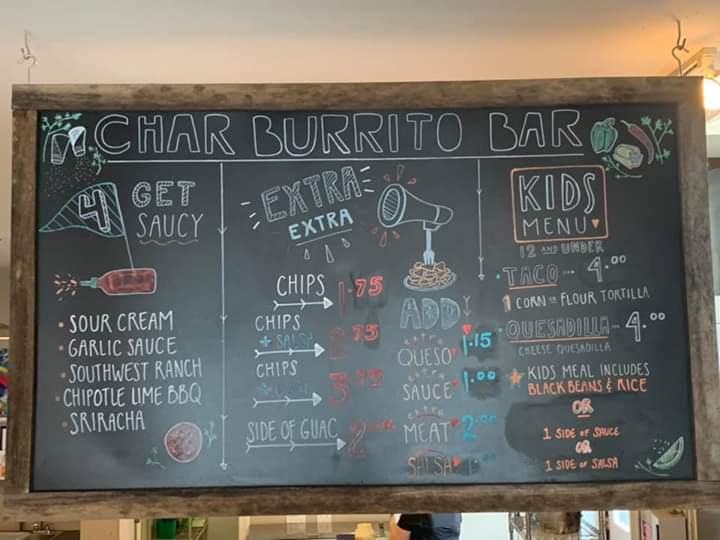 CHAR BURRITO BAR
4
GET
SAUCY
• SOUR CREAM
• GARLIC SAUCE
• SOUTHWEST RANCH
• CHIPOTLE LIME BBQ
• SRIRACHA
EXTRA
EXTRA
CHIPS 1.75
CHIPS
+ SALSA 2.75
CHIPS
3.75
SIDE OF GUAC
ADD
EXTRA
QUESO 1.15
EXTRA
SAUCE 1.00
EXTRA
MEAT 2.00
EXTRA
SALSA
KIDS
MENU
12 AND UNDER
• TACO 4.00
CORN OR FLOUR TORTILLA
• QUESADILLA 4.00
CHEESE QUESADILLA
KIDS MEAL INCLUDES
BLACK BEANS & RICE
OR
1 SIDE OF SAUCE
OR
1 SIDE OF SALSA